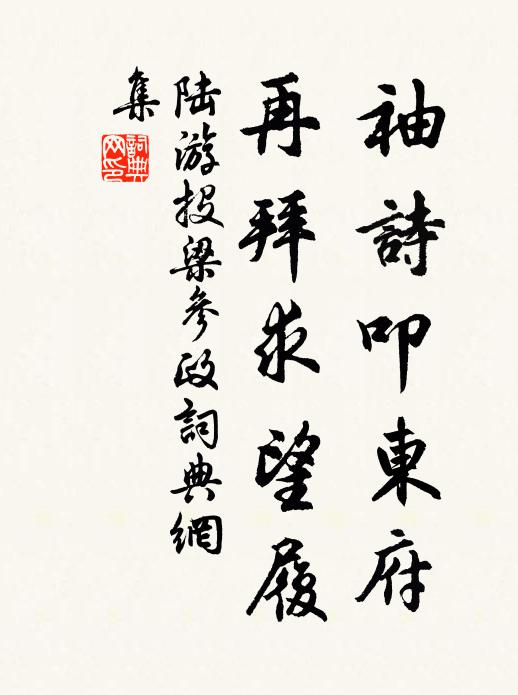 袖詩叩東府
再拜求望履
陸游投梁參政詞典網
集
詞典網印